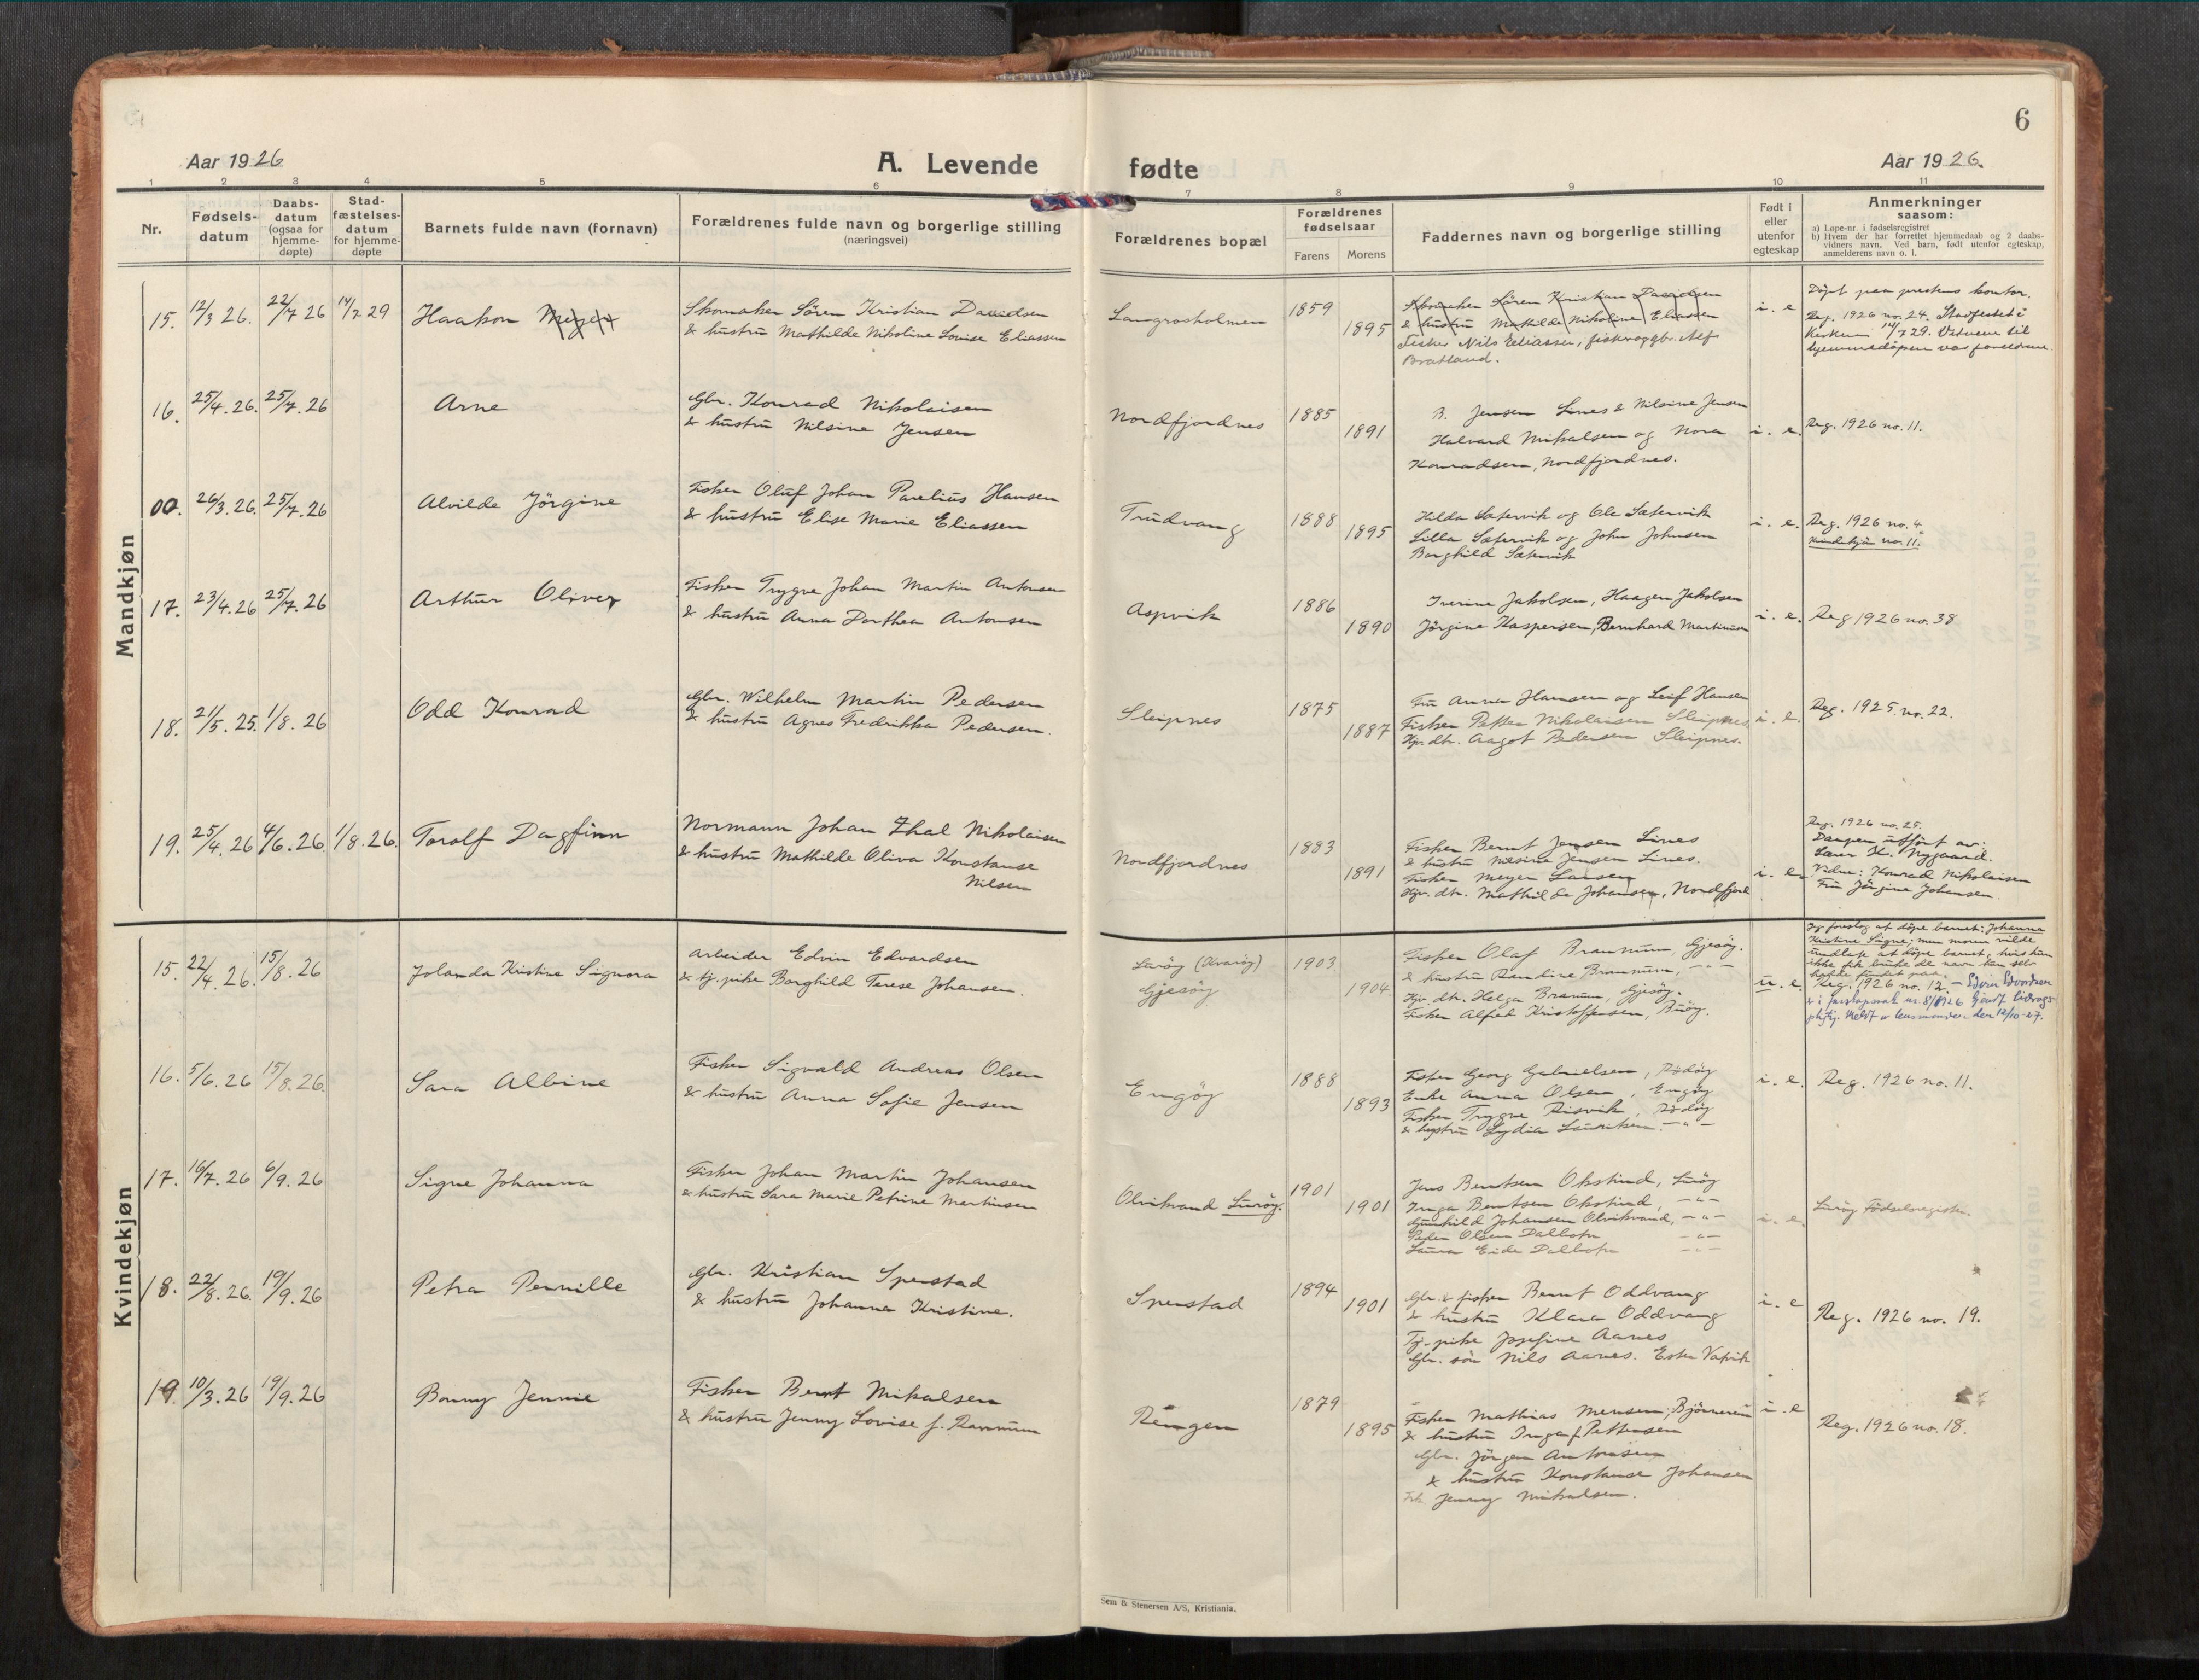 6
Aar 1926
A. Levende fødte
Aar 1926.
1 2 3 4 5 6 7 8 9 10 11
Nr.
Fødsels-
datum
Daabs-
datum
(ogsaa for
hjemme-
døpte)
Stad-
fæstelses-
datum
for hjemme-
døpte
Barnets fulde navn (fornavn)
Forældrenes fulde navn og borgerlige stilling
(næringsvei)
Forældrenes bopæl
Forældrenes
fødselsaar
Farens Morens
Faddernes navn og borgerlige stilling
Født i
eller
utenfor
egteskap
Anmerkninger
saasom:
a) Løpe-nr. i fødselsregistret
b) Hvem der har forrettet hjemmedaab og 2 daabs-
vidners navn. Ved barn, født utenfor egteskap,
anmelderens navn o. l.
Mandkjøn
15. 12/3 26. 22/7 26 14/7 29 Haakon Meyer
Skomaker Sören Kristian Davidsen
& hustru Mathilde Nikoline Lovise Eliassen
Langrosholmen 1859 1895
Skomaker Sören Kristian Davidsen
& hustru Mathilde Nikoline Eliassen
Fisker Nils Eliassen, fisker og gbr. Alf
Bratland.
i. e
Döpt paa prestens kontor.
Reg. 1926 no. 24. Stadfestet i
Kirken 14/7 29. Vidnene til
hjemmedåpen var foreldrene.
16. 25/4. 26. 25/7. 26 Arne
Gbr. Konrad Nikolaisen
& hustru Nilsine Jensen
Nordfjordnes 1885 1891
B. Jensen Lines & Nilsine Jensen
Halvard Mikalsen og Nora
Konradsen, Nordfjordnes.
i. e. Reg. 1926 no. 11.
00. 26/3. 26. 25/7. 26 Alvilde Jörgine
Fisker Oluf Johan Parelius Hansen
& hustru Elise Marie Eliassen
Trudvang 1888 1895
Hilda Sætervik og Ole Sætervik
Lilla Sætervik og John Johnsen
Borghild Sætervik
i. e. Reg. 1926 no. 4
Kvindekjön no. 11.
17. 23/4. 26 25/7. 26 Arthur Oliver
Fisker Trygve Johan Martin Antonsen
& hustru Anna Dorthea Antonsen
Aspvik 1886 1890
Iverine Jakobsen, Haagen Jakobsen
Jörgine Kaspersen, Bernhard Martinussen
i. e. Reg 1926 no. 38
18. 21/5. 25. 1/8. 26 Odd Konrad
Gbr. Wilhelm Martin Pedersen
& hustru Agnes Fredrikka Pedersen.
Sleipnes 1875 1887
Fru Anna Hansen og Leif Hansen
Fisker Petter Nikolaisen Sleipnes
Hjv. dtr. Aagot Pedersen Sleipnes.
i. e. Reg. 1925 no. 22.
19. 25/4. 26 4/6. 26. 1/8. 26. Toralf Dagfinn
Normann Johan Thal Nikolaisen
& hustru Mathilde Oliva Konstanse
Nilsen
Nordfjordnes 1883 1891
Fisker Bernt Jensen Lines
& hustru Nilsine Jensen Lines.
Fisker Meyer Larsen
Hjv. dtr. Mathilde Johansen, Nordfjord
i. e.
Reg. 1926 no. 25.
Daapen utfört av:
Lærer K. Nygaard.
Vidne: Konrad Nikolaisen
Fru Jörgine Johansen.
Kvindekjøn
15. 22/4. 26. 15/8. 26 Jolanda Kristine Signora
Arbeider Edvin Edvardsen
& tj. pike Borghild Terese Johansen.
Luröy (Kvaröy)
Gjesöy 1903 1904
Fisker Olaf Bramnum, Gjesöy.
& hustru Bramnum, - " -
Hjv. dtr. Helga Bramnum, Gjesöy.
Fisker Alfred Kristoffersen, Buöy.
u. e.
Jeg foreslog at döpe barnet: Johanna
Kristine Signe; men moren vilde
undlate at döpe barnet, hvis hun
ikke fik bruke de navn hun selv
hadde fundet paa.
Reg. 1926 no. 12. - Edvin Edvardsen
er i farskapssak nr. 8/1926 kjendt bidrags-
pligtig. Meldt av lensmanden den 12/10-27.
16. 5/6. 26 15/8. 26. Sara Albine
Fisker Sigvald Andreas Olsen
& hustru Anna Sofie Jensen
Engöy 1888 1893
Fisker Georg Gabrielsen, Rödöy
Enke Anna Olsen, Engöy
Fisker Trygve Risvik, Rödöy
& hustru Lydia Lauritsen. - " -
i. e. Reg. 1926 no. 11.
17. 16/7. 26 6/9. 26 Signe Johanna
Fisker Johan Martin Johansen
& hustru Sara Marie Petrine Martinsen
Olvikvand Luröy. 1901 1901
Jens Bentsen Okstind, Luröy
Inga Bentsen Okstind, - " -
Gunhild Johansen Olvikvand, - " -
Peder Olsen Dalhofn - " -
Laura Eide Dalhofn - " -
i. e. Luröy Födselsregister.
18. 22/8. 26. 19/9. 26 Petra Pernille
Gbr. Kristian Sperstad
& hustru Johanna Kristine.
Sperstad 1894 1901
Gbr. & fisker Bernt Oddvang
& hustru Klara Oddvang
Tj. pike Josefine Aanes
Gbr. sön Nils Aanes. Ester Vatvik
i. e Reg. 1926 no. 19.
19. 10/3. 26 19/9. 26 Bonny Jennie
Fisker Bernt Mikalsen
& hustru Jenny Lovise f. Rammum
Ringen 1879 1895
Fisker Mathias Monsen, Björnereim
& hustru Inga f. Pettersen
Gbr. Jörgen Antonsen
& hustru Konstanse Johansen
Frk. Jenny Mikalsen.
i. e Reg. 1926 no. 18.
Sem & Stenersen A/S, Kristiania.